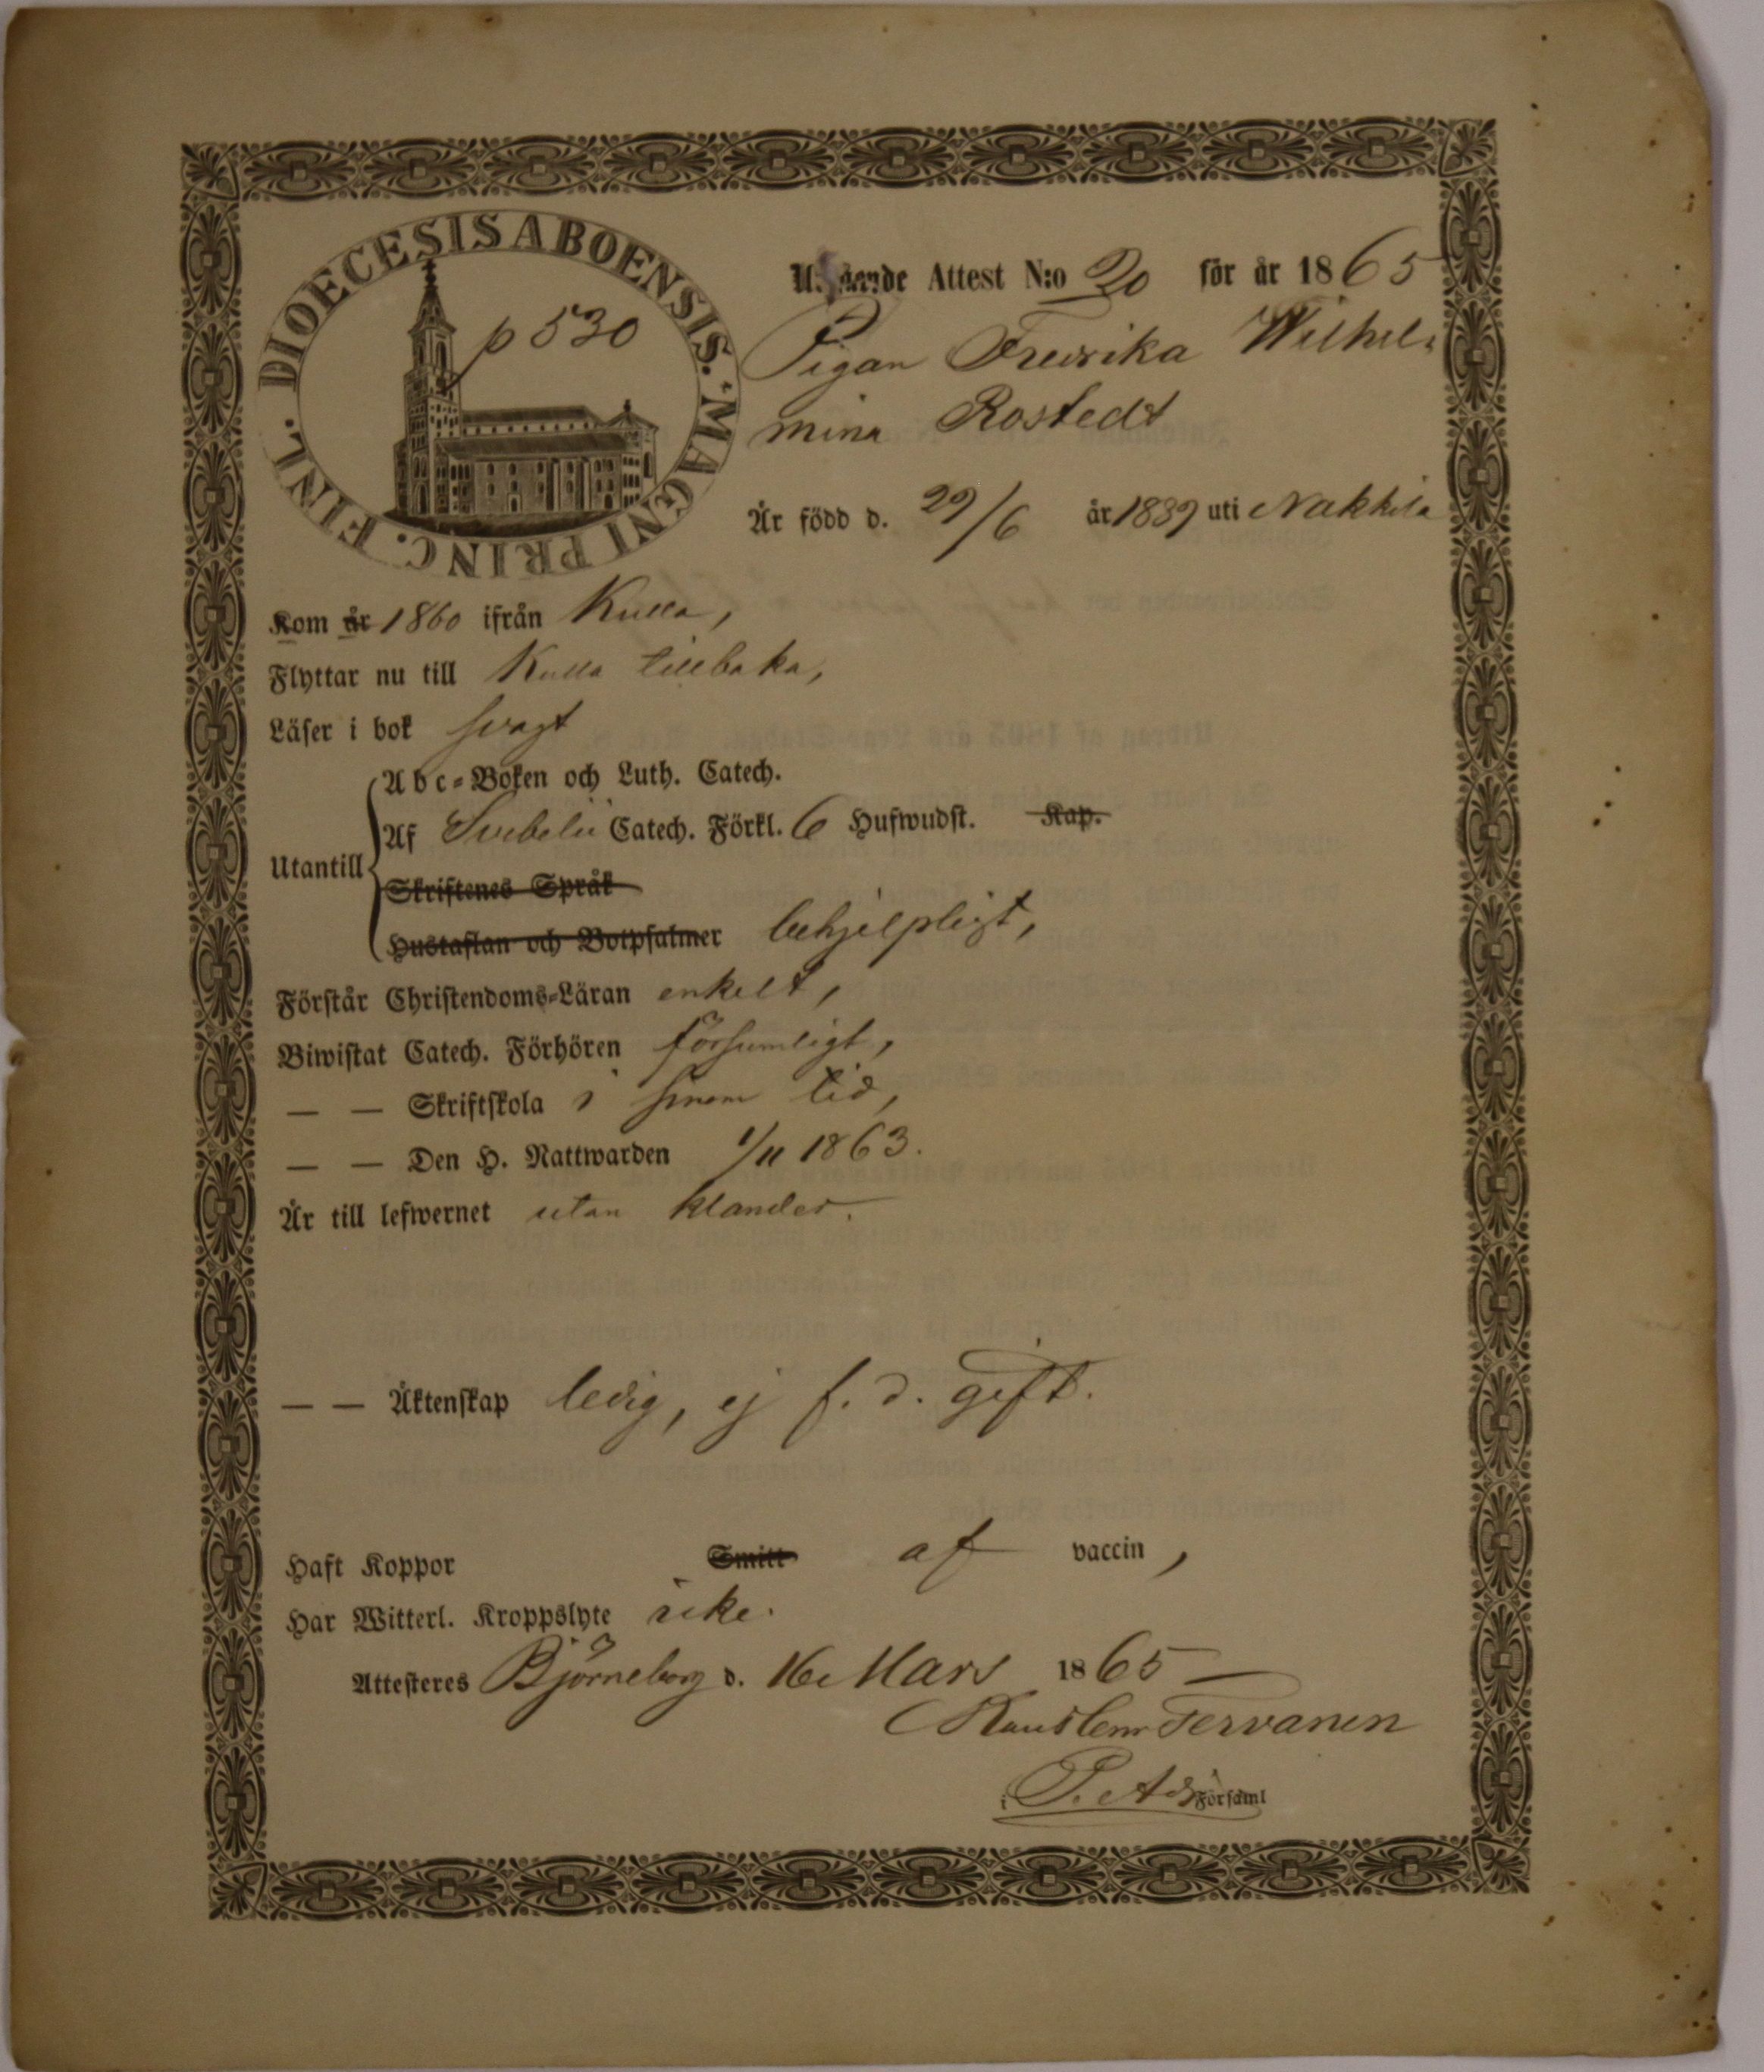 DIOECESIS ABOENSIS. MAGNI PRINC. FINL.
p 530
Utgående Attest N:o 20 för år 1865
Pigan Fredrika Wilhel-
mina Rostedt
Är född d. 29/6 år 1839 uti Nakkila
Kom år 1860 ifrån Kulla,
Flyttar nu till Kulla tillbaka,
Läser i bok svagt
Utantill
Abc-Boken och Luth. Catech.
Af Svebelii Catech. Förkl. 6 Hufwudst. Kap.
Skriftenes Språk
Hustaflan och Botpsalmer behjelpligt,
Förstår Christendoms-Läran enkelt,
Biwistat Catech. Förhören försumligt,
— — Skriftskola i sinom tid,
— — Den H. Nattwarden 1/11 1863.
Är till lefwernet utan klander.
— — Äktenskap ledig, ej f. d. gift.
Haft Koppor Smitt af vaccin,
Har Witterl. Kroppslyte icke.
Attesteres Björneborg d. 16 Mars 1865
Tervanen
i P. Adj. Församl